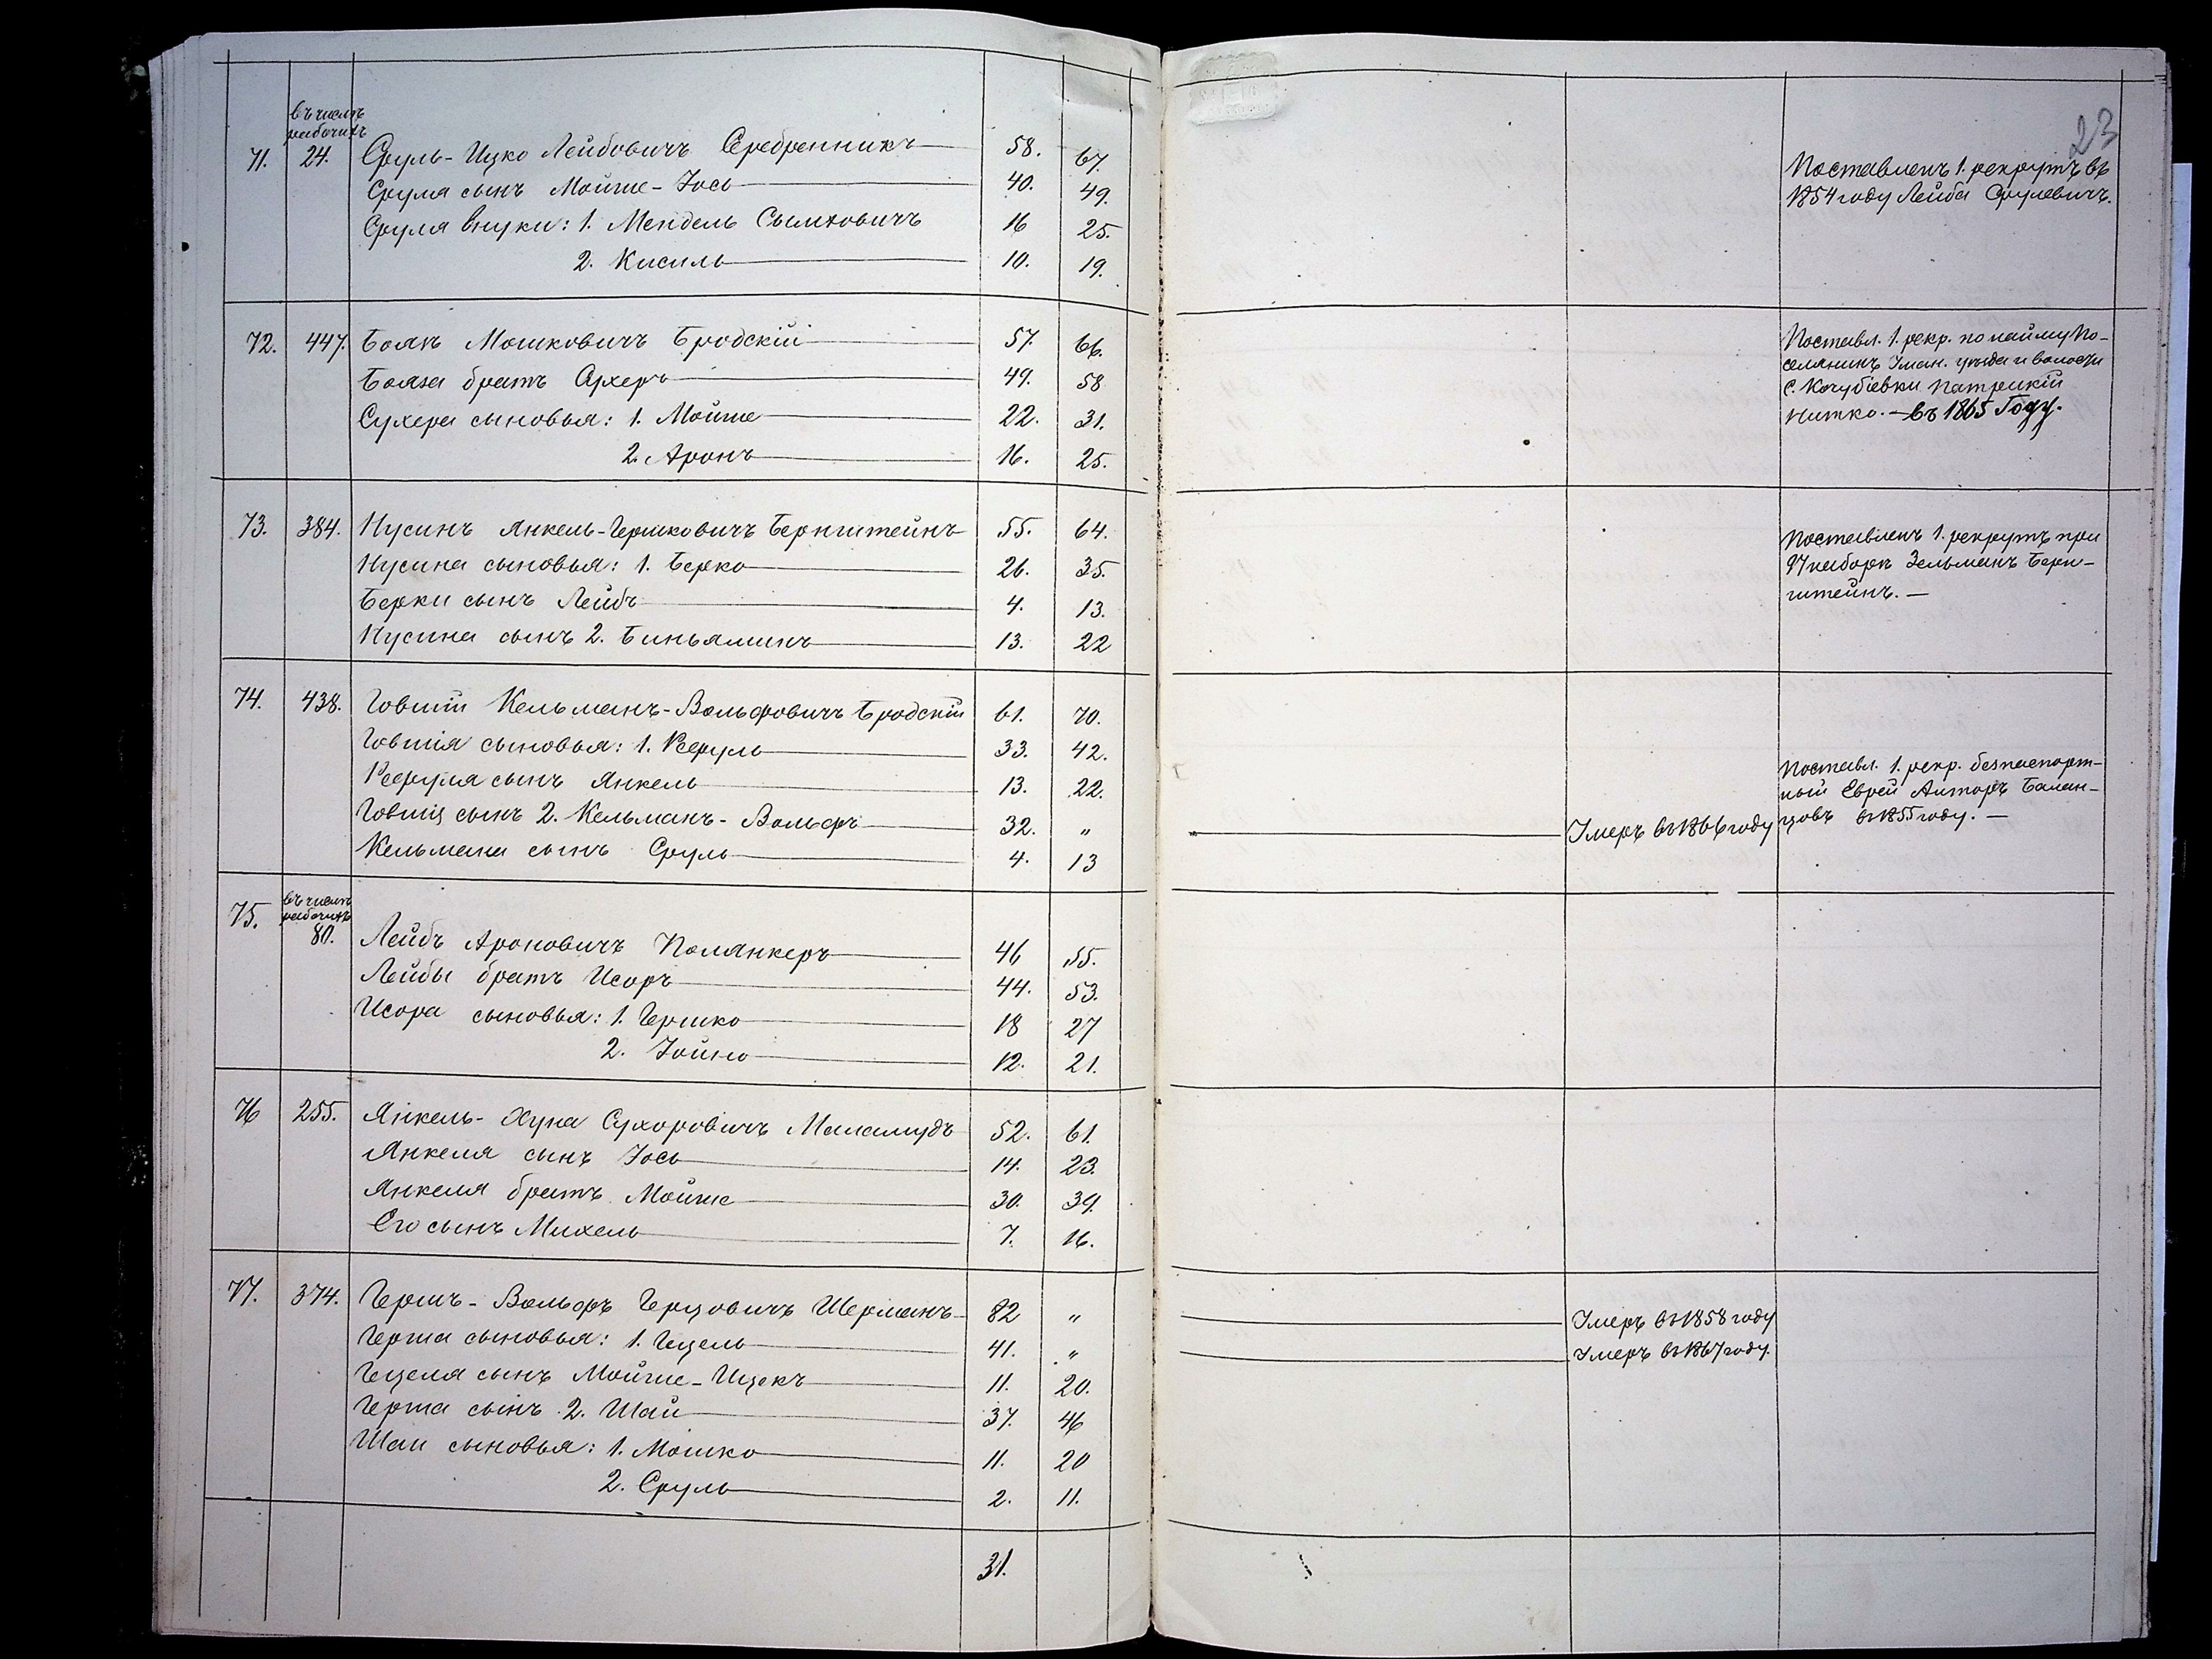 23
въ числѣ
рабочихъ
71. 24. Сруль-Ицко Лейбовичъ Серебренникъ 58. 67. Поставленъ 1. рекрутъ въ
Сруля сынъ Мойше-Іось 40. 49. 1854 году Лейба Срулевичъ.
Сруля внуки: 1. Мендель Сымховичъ 16 25.
2. Кисиль 10. 19.
72. 447. Боязъ Мошковичъ Бродскій 57. 66. Поставл. 1. рекр. по найму по-
Бояза братъ Сухеръ 49. 58 селянинъ Уман. уѣзда и волости
Сухера сыновья: 1. Мойше 22. 31. С. Кочубіевки Патрикій
2. Аронъ 16. 25. Нитко. — въ 1865 Году.
73. 384. Нусинъ Янкель-Гершковичъ Бернштейнъ 55. 64. Поставленъ 1. рекрутъ при
Нусина сыновья: 1. Берко 26. 35. 97 наборѣ Зельманъ Берн-
Берки сынъ Лейбъ 4. 13. штейнъ. —
Нусина сынъ 2. Биньяминъ 13. 22
74. 438. Говшій Кельманъ-Вольфовичъ Бродскій 61. 70.
Говшія сыновья: 1. Сруль 33. 42.
Сруля сынъ Янкель 13. 22. Поставл. 1. рекр. безпаспорт-
ный Еврей Анторъ Балан-
Говшія сынъ 2. Кельманъ-Вольфъ 32. " Умеръ въ 1866 году цовъ въ 1855 году. —
Кельмана сынъ Сруль 4. 13
въ числѣ
рабочихъ
75. 80. Лейбъ Ароновичъ Полянкеръ 46 55.
Лейбы братъ Исоръ 44. 53.
Исора сыновья: 1. Гершко 18 27
2. Іойно 12. 21.
76 255. Янкель-Хуна Сухоровичъ Маламудъ 52. 61.
Янкеля сынъ Іось 14. 23.
Янкеля братъ Мойше 30. 39.
Его сынъ Михель 7. 16.
77. 374. Гершъ-Вольфъ Герцовичъ Шерманъ 82 " Умеръ въ 1858 году
Герша сыновья: 1. Гецель 41. " Умеръ въ 1867 году.
Гецеля сынъ Мойше-Ицекъ 11. 20.
Герша сынъ 2. Шай 37. 46
Шаи сыновья: 1. Мошко 11. 20
2. Сруль 2. 11.
31.